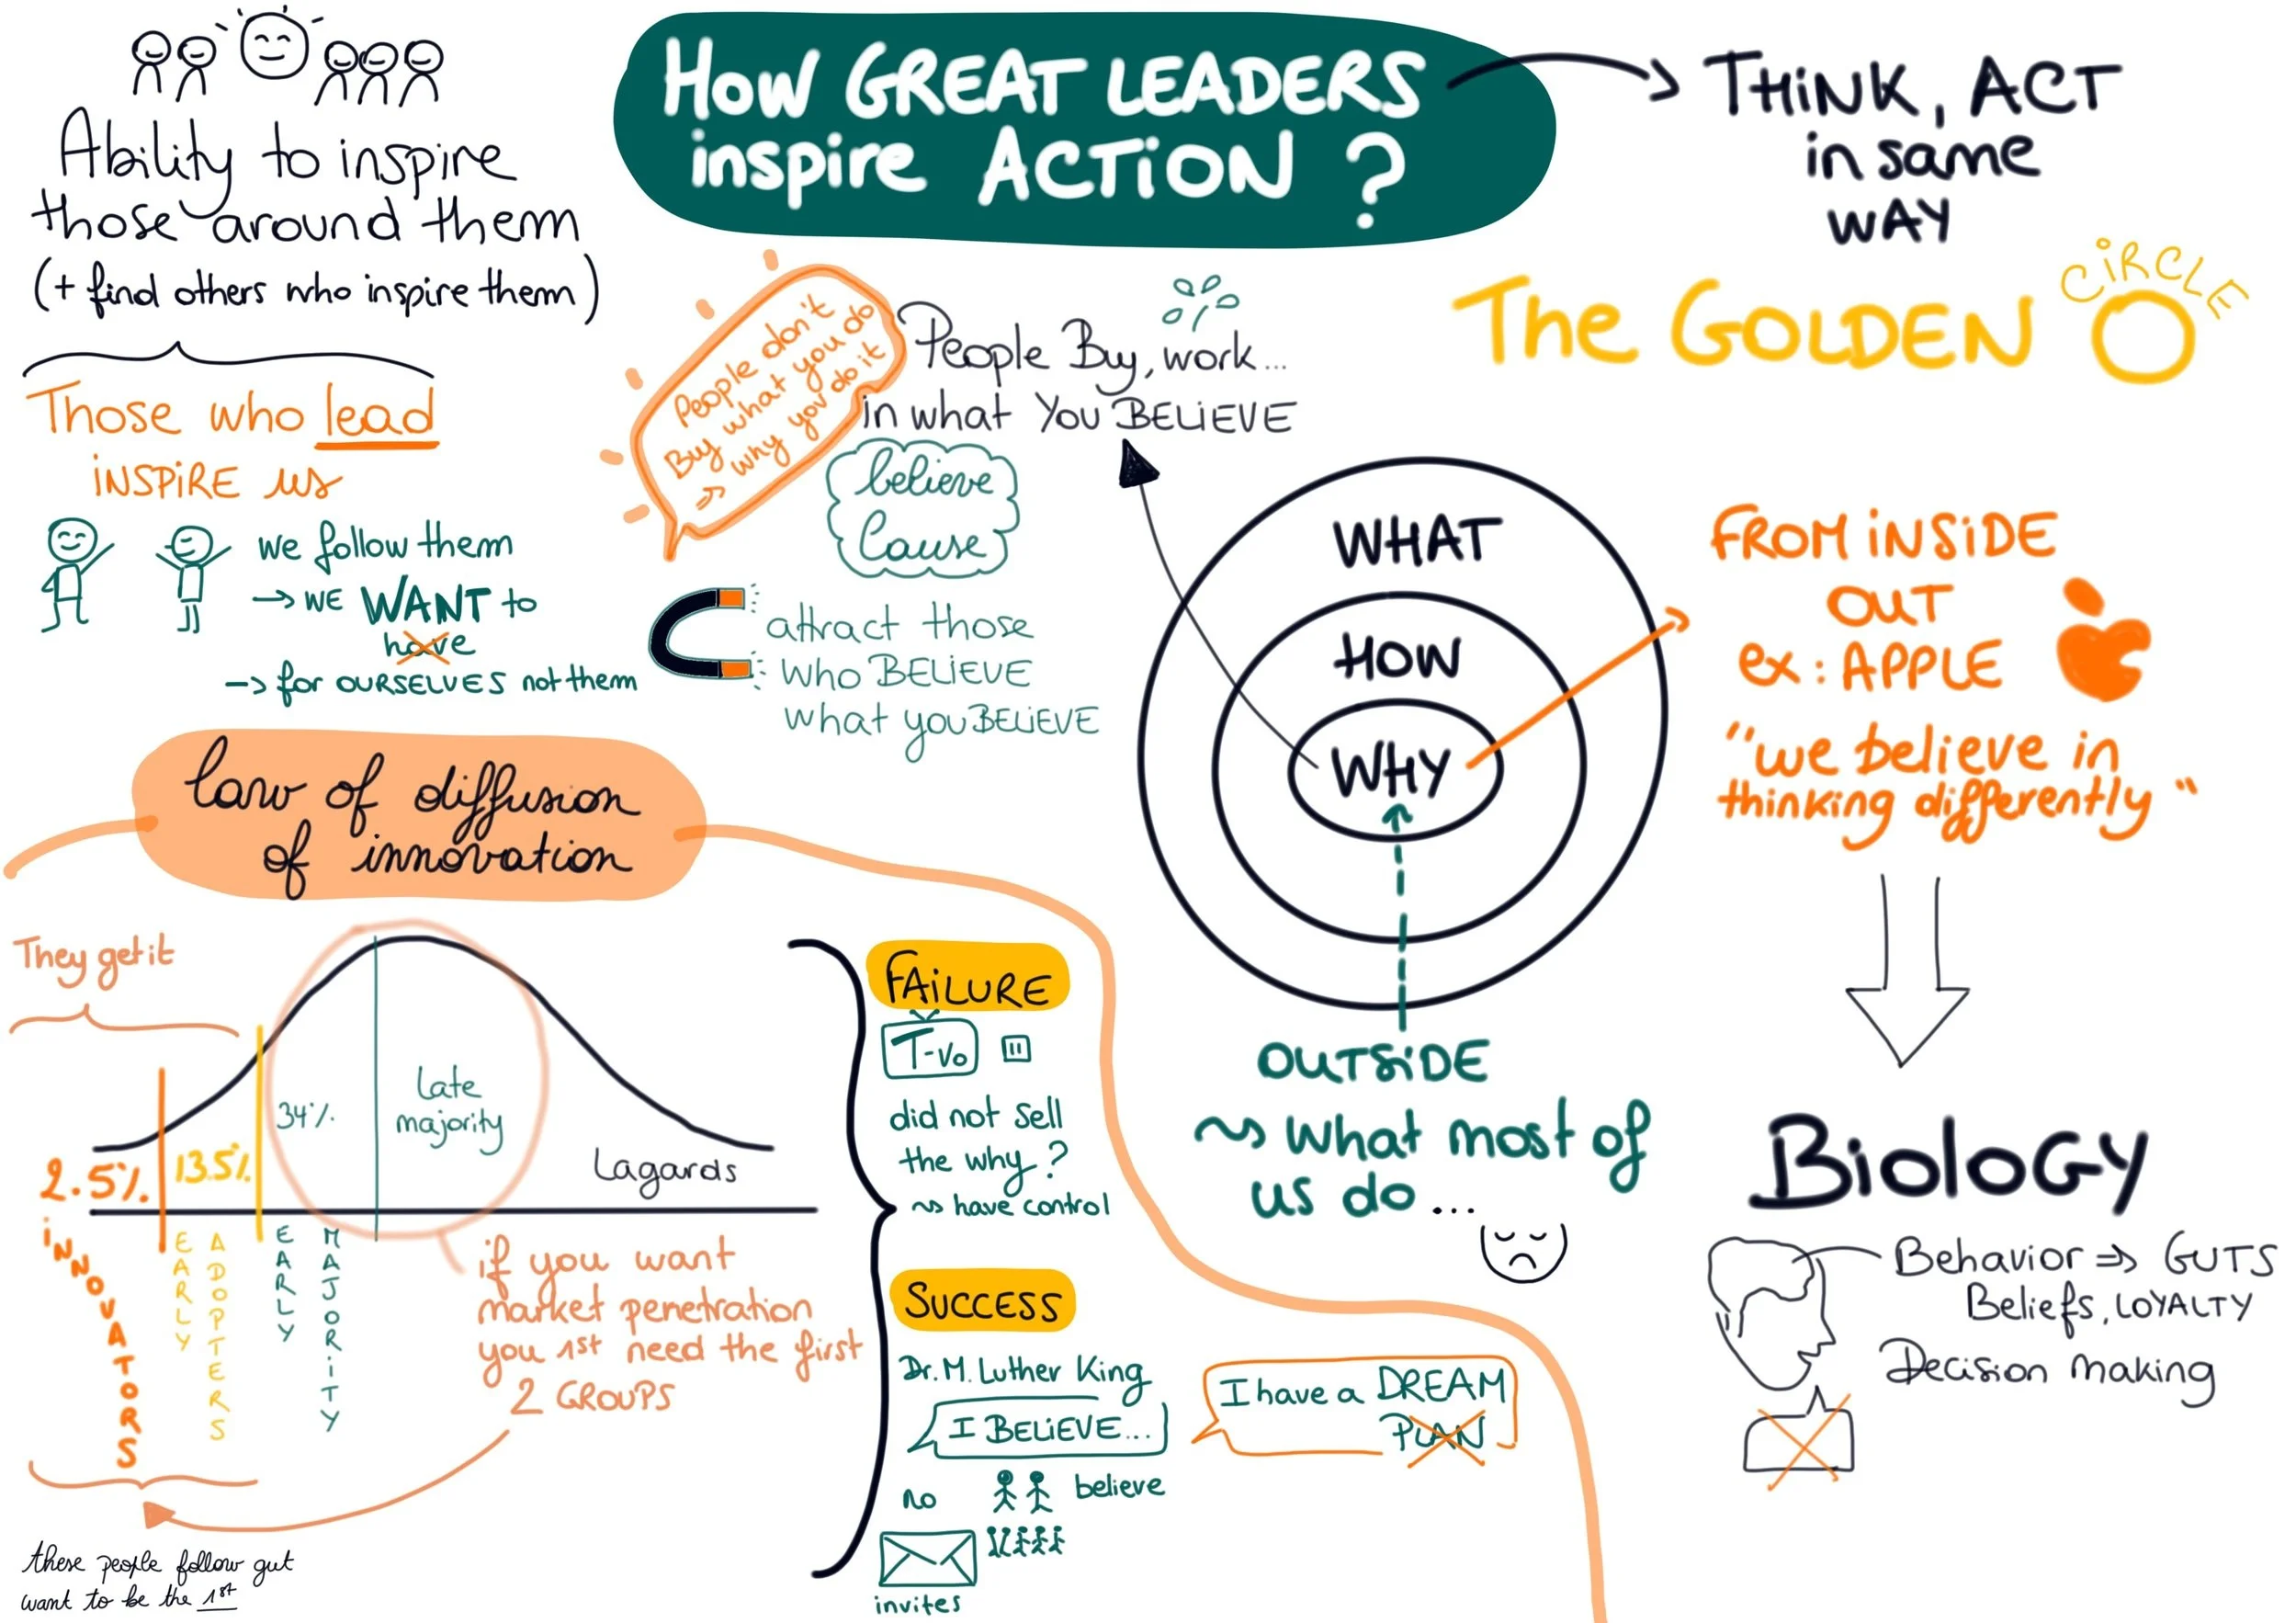 How GREAT LEADERS
inspire ACTiON ?
THiNK, ACT
in same
WAY
The GOLDEN
CiRCLE
Ability to inspire
those around them
(+ find others who inspire them)
Those who lead
iNSPiRE us
we follow them
→ WE WANT to
have
→ for OURSELVES not them
People don't
Buy what you do
→ why you do it
People Buy, work...
in what YOU BELiEVE
believe
Cause
attract those
WHO BELiEVE
what you BELiEVE
WHAT
HOW
WHY
FROM iNSiDE
OUT
ex: APPLE
"we believe in
thinking differently"
OUTSiDE
~> What most of
us do ...
BioloGY
Behavior => GUTS
Beliefs, LOYALTY
Decision making
law of diffusion
of innovation
They get it
2.5%
13.5%
34%
Late
majority
Lagards
iNNOVATORS
EARLY
ADOPTERS
EARLY
MAJORiTY
if you want
market penetration
you 1st need the first
2 GROUPS
these people follow gut
want to be the 1st
FAiLURE
T-Vo
did not sell
the why ?
~> have control
SUCCESS
Dr. M. Luther King
I BELiEVE...
I have a DREAM
PLAN
no
believe
invites